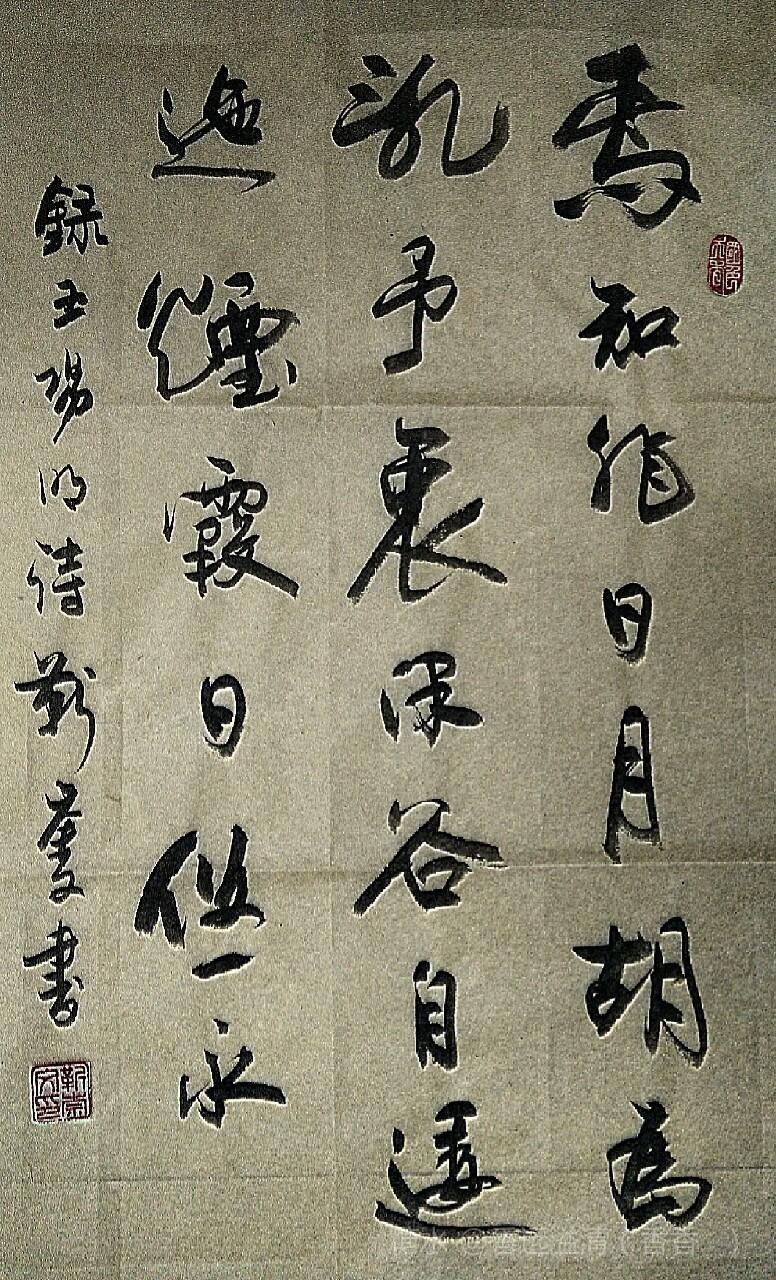 焉知非日月胡為
亂予衷深谷自逶
迤煙霞日悠永
録王陽明詩靳書